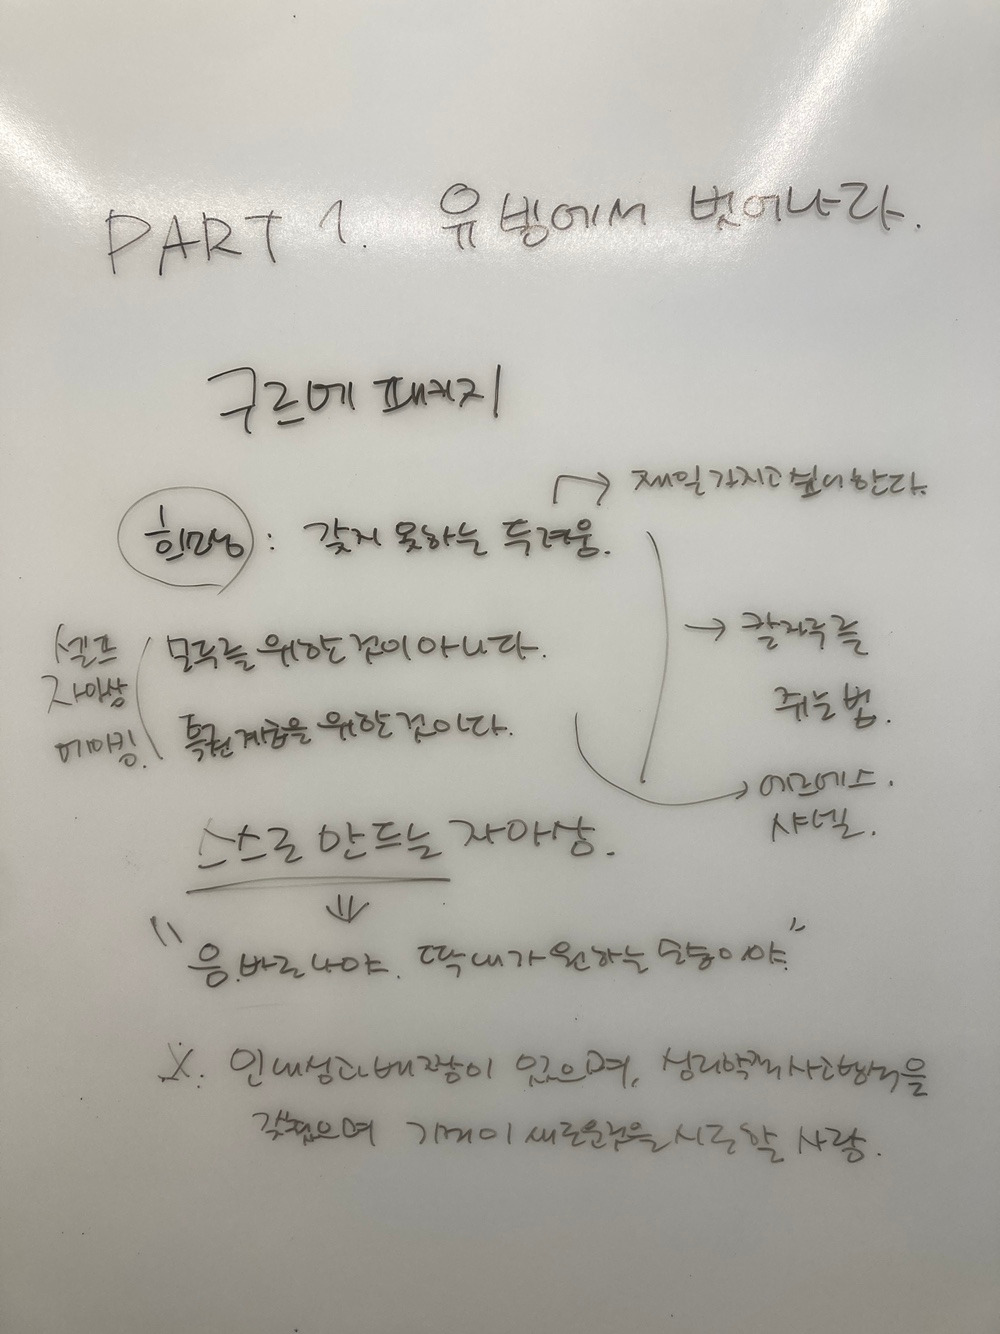 PART 1. 유빙에서 벗어나라.
구르메 패키지
희망 : 갖지 못하는 두려움.
→ 제일 가지고 싶어한다.
셀프
자아상
메이킹.
모두를 위한 것이 아니다.
특권계층을 위한 것이다.
→ 칼자루를
쥐는 법.
→ 에르메스.
샤넬.
스스로 만드는 자아상.
⇓
"응. 바로 나야. 딱 내가 원하는 모습이야."
※. 인내성과 배짱이 있으며, 심리학적 사고방식을
갖췄으며 기꺼이 새로운 것을 시도할 사람.